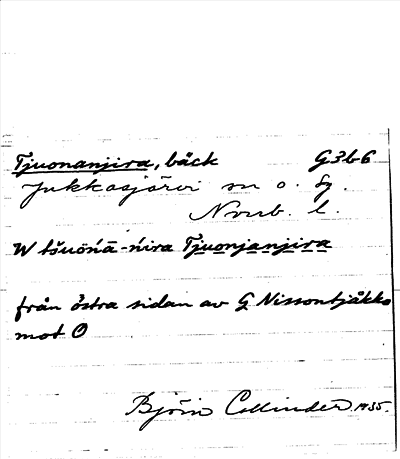 Tjuonanjira, bäck G3b6
Jukkasjärvi sn o. lg.
Norrb. l.
W tšuōńā-ńira Tjuonjanjira
från östra sidan av G Nissontjåkko
mot O
Björn Collinder 1935.